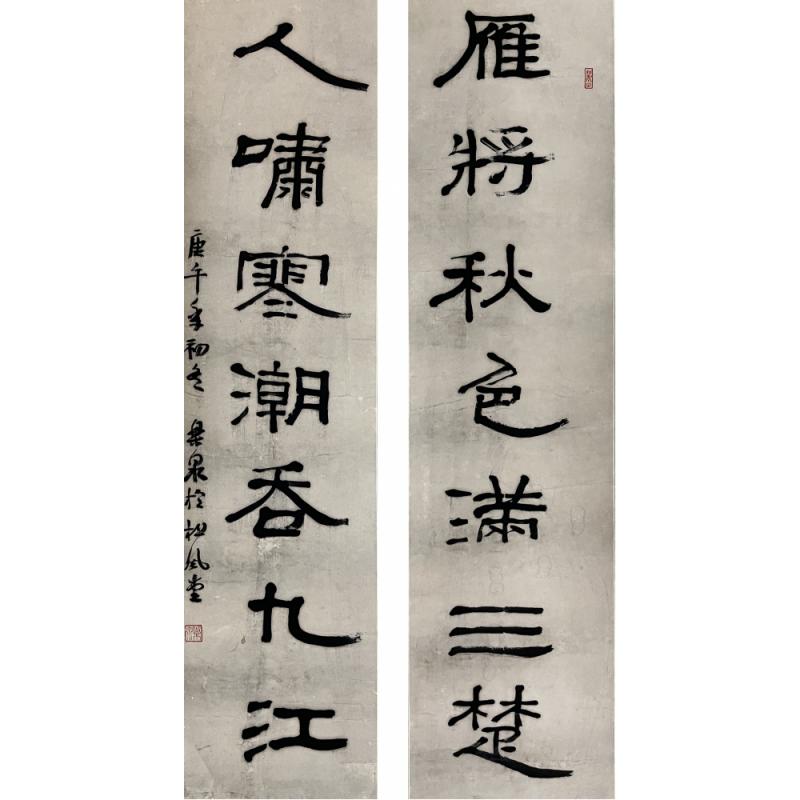 雁将秋色满三楚
人啸寒潮吞九江
庚午年初冬 泉於松风堂